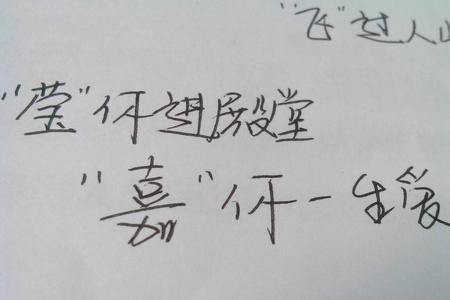 "飞"过人
"莹"你进殿堂
"嘉"你一生